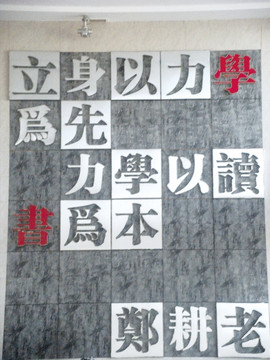 立身以力學
爲先
力學以讀
書爲本
鄭耕老